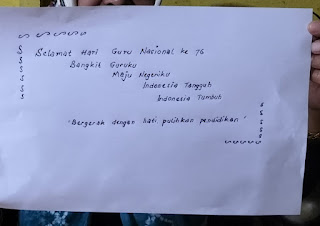 Selamat Hari Guru Nasional ke 76
Bangkit Guruku
Maju Negeriku
Indonesia Tangguh
Indonesia Tumbuh
"Bergerak dengan hati pulihkan pendidikan"